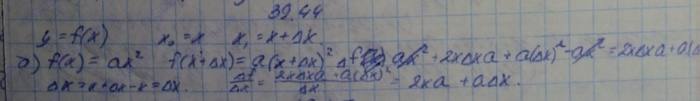 39.44
y = f(x) x₀ = x x₁ = x + Δx
б) f(x) = ax² f(x+Δx) = a(x + Δx)² Δf = ax² + 2xΔxa + a(Δx)² - ax² = 2xΔxa + a(Δ
Δx = x + Δx - x = Δx. Δf/Δx = 2xΔxa + a(Δx)²/Δx = 2xa + aΔx.